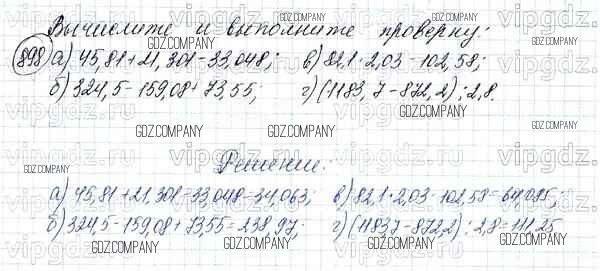 Вычислите и выполните проверку:
898 а) 45,81+21,301-33,048; в) 82,1·2,03-102,58;
б) 324,5-159,08+73,55; г) (1183,7-872,2):2,8.
Решение:
а) 45,81+21,301-33,048=34,063; в) 82,1·2,03-102,58=64,085;
б) 324,5-159,08+73,55=238,97; г) (1183,7-872,2):2,8=111,25
vipgdz.ru
GDZ.COMPANY